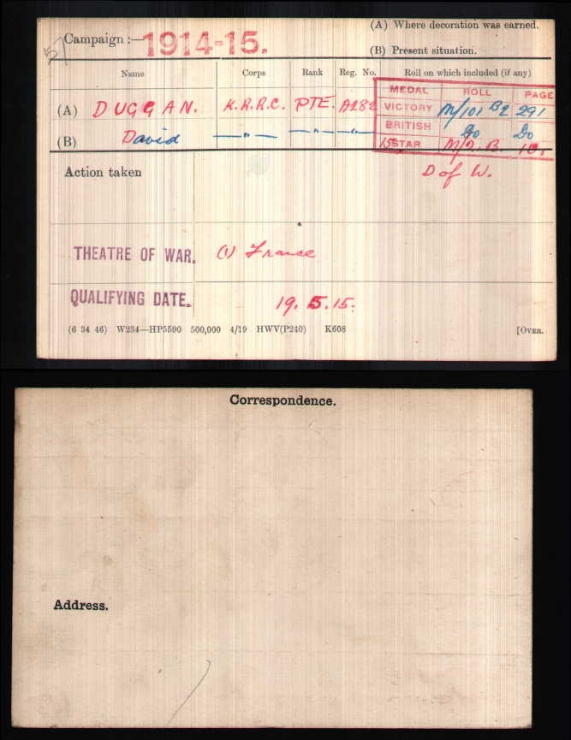 (A) Where decoration was earned.
Campaign :— 1914-15.
(B) Present situation.
Name Corps Rank Reg. No. Roll on which included (if any)
MEDAL ROLL PAGE
(A) DUGGAN. K.R.R.C. PTE. A282 VICTORY M/101 B2 291
(B) David —"— —"— —"— BRITISH Do Do
15 STAR M/9. B. 10.
Action taken D of W.
THEATRE OF WAR. (1) France
QUALIFYING DATE. 19. 5. 15.
(6 34 46) W234—HP5590 500,000 4/19 HWV(P240) K608 [OVER.
Correspondence.
Address.